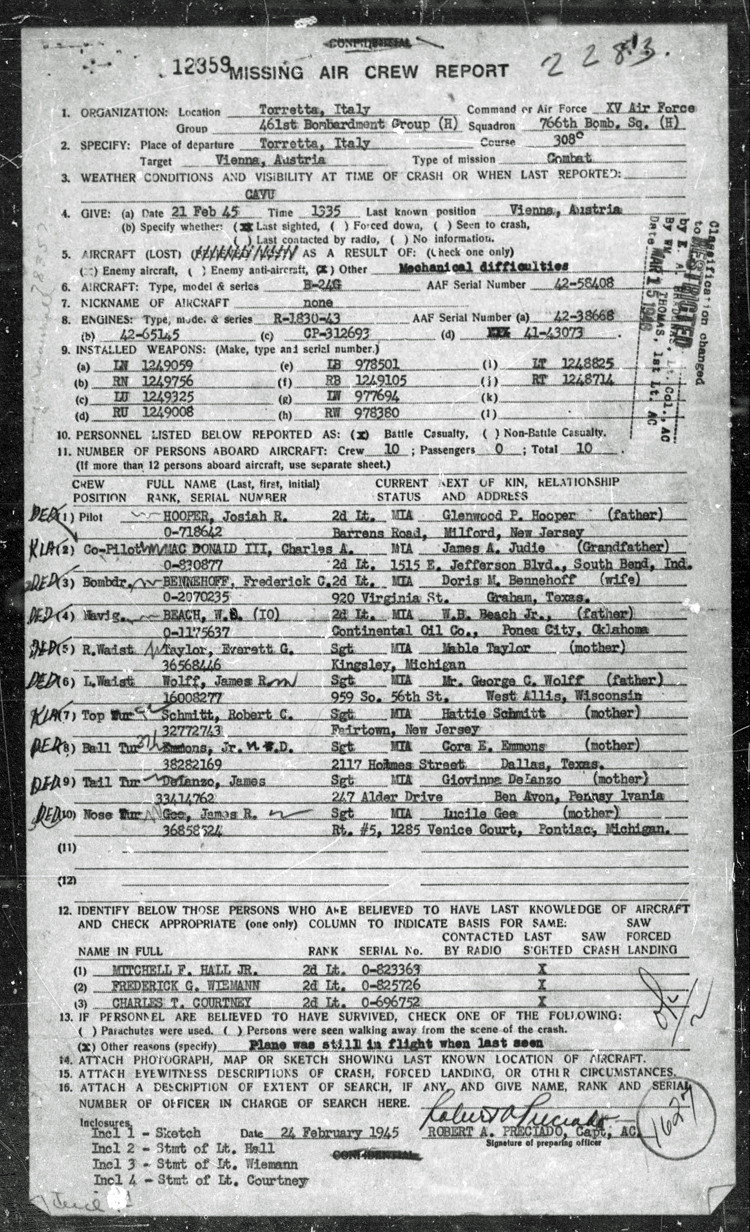 CONFIDENTIAL
12359 MISSING AIR CREW REPORT 2283.
1. ORGANIZATION: Location Torretta, Italy Command or Air Force XV Air Force
Group 461st Bombardment Group (H) Squadron 766th Bomb. Sq. (H)
2. SPECIFY: Place of departure Torretta, Italy Course 308°
Target Vienna, Austria Type of mission Combat
3. WEATHER CONDITIONS AND VISIBILITY AT TIME OF CRASH OR WHEN LAST REPORTED:
CAVU
4. GIVE: (a) Date 21 Feb 45 Time 1335 Last known position Vienna, Austria
(b) Specify whether: (X) Last sighted, ( ) Forced down, ( ) Seen to crash,
( ) Last contacted by radio, ( ) No information.
5. AIRCRAFT (LOST) AS A RESULT OF: (Check one only)
( ) Enemy aircraft, ( ) Enemy anti-aircraft, (X) Other Mechanical difficulties
6. AIRCRAFT: Type, model & series B-24G AAF Serial Number 42-58408
7. NICKNAME OF AIRCRAFT none
8. ENGINES: Type, model & series R-1830-43 AAF Serial Number (a) 42-38668
(b) 42-65145 (c) CP-312693 (d) 41-43073
9. INSTALLED WEAPONS: (Make, type and serial number.)
(a) LN 1249059 (e) LB 978501 (i) LT 1248825
(b) RN 1249756 (f) RB 1249105 (j) RT 1248714
(c) LU 1249325 (g) LW 977694 (k)
(d) RU 1249008 (h) RW 978380 (l)
10. PERSONNEL LISTED BELOW REPORTED AS: (X) Battle Casualty, ( ) Non-Battle Casualty.
11. NUMBER OF PERSONS ABOARD AIRCRAFT: Crew 10 ; Passengers 0 ; Total 10 .
(If more than 12 persons aboard aircraft, use separate sheet.)
CREW FULL NAME (Last, first, initial) CURRENT NEXT OF KIN, RELATIONSHIP
POSITION RANK, SERIAL NUMBER STATUS AND ADDRESS
DED (1) Pilot HOOPER, Josiah R. 2d Lt. MIA Glenwood P. Hooper (father)
0-718642 Barrens Road, Milford, New Jersey
KIA (2) Co-Pilot MAC DONALD III, Charles A. MIA James A. Judie (Grandfather)
0-830877 2d Lt. 1515 E. Jefferson Blvd., South Bend, Ind.
DED (3) Bombdr. BENNEHOFF, Frederick C. 2d Lt. MIA Doris M. Bennehoff (wife)
0-2070235 920 Virginia St. Graham, Texas.
DED (4) Navig. BEACH, W.B. (IO) 2d Lt. MIA W.B. Beach Jr., (father)
0-1175637 Continental Oil Co., Ponca City, Oklahoma
DED (5) R.Waist Taylor, Everett G. Sgt MIA Mable Taylor (mother)
36568446 Kingsley, Michigan
DED (6) L.Waist Wolff, James R. Sgt MIA Mr. George C. Wolff (father)
16008277 959 So. 56th St. West Allis, Wisconsin
KIA (7) Top Tur Schmitt, Robert C. Sgt MIA Hattie Schmitt (mother)
32772743 Fairtown, New Jersey
DED (8) Ball Tur Emmons, Jr. W.D. Sgt MIA Cora E. Emmons (mother)
38282169 2117 Holmes Street Dallas, Texas.
DED (9) Tail Tur DeIanzo, James Sgt MIA Giovinna DeIanzo (mother)
33414762 247 Alder Drive Ben Avon, Pennsylvania
DED (10) Nose Tur Gee, James R. Sgt MIA Lucile Gee (mother)
36858524 Rt. #5, 1285 Venice Court, Pontiac, Michigan.
(11)
(12)
12. IDENTIFY BELOW THOSE PERSONS WHO ARE BELIEVED TO HAVE LAST KNOWLEDGE OF AIRCRAFT
AND CHECK APPROPRIATE (one only) COLUMN TO INDICATE BASIS FOR SAME: SAW
CONTACTED LAST SAW FORCED
NAME IN FULL RANK SERIAL No. BY RADIO SIGHTED CRASH LANDING
(1) MITCHELL F. HALL JR. 2d Lt. 0-823363 X
(2) FREDERICK G. WIEMANN 2d Lt. 0-825726 X
(3) CHARLES T. COURTNEY 2d Lt. 0-696752 X
13. IF PERSONNEL ARE BELIEVED TO HAVE SURVIVED, CHECK ONE OF THE FOLLOWING:
( ) Parachutes were used. ( ) Persons were seen walking away from the scene of the crash.
(X) Other reasons (specify) Plane was still in flight when last seen
14. ATTACH PHOTOGRAPH, MAP OR SKETCH SHOWING LAST KNOWN LOCATION OF AIRCRAFT.
15. ATTACH EYEWITNESS DESCRIPTIONS OF CRASH, FORCED LANDING, OR OTHER CIRCUMSTANCES.
16. ATTACH A DESCRIPTION OF EXTENT OF SEARCH, IF ANY, AND GIVE NAME, RANK AND SERIAL
NUMBER OF OFFICER IN CHARGE OF SEARCH HERE.
Robert A Preciado
Inclosures
Incl 1 - Sketch Date 24 February 1945 ROBERT A. PRECIADO, Capt, AC.
Signature of preparing officer
1627
Incl 2 - Stmt of Lt. Hall
CONFIDENTIAL
Incl 3 - Stmt of Lt. Wiemann
Incl 4 - Stmt of Lt. Courtney
Classification changed
to RESTRICTED
MAR 15 1946